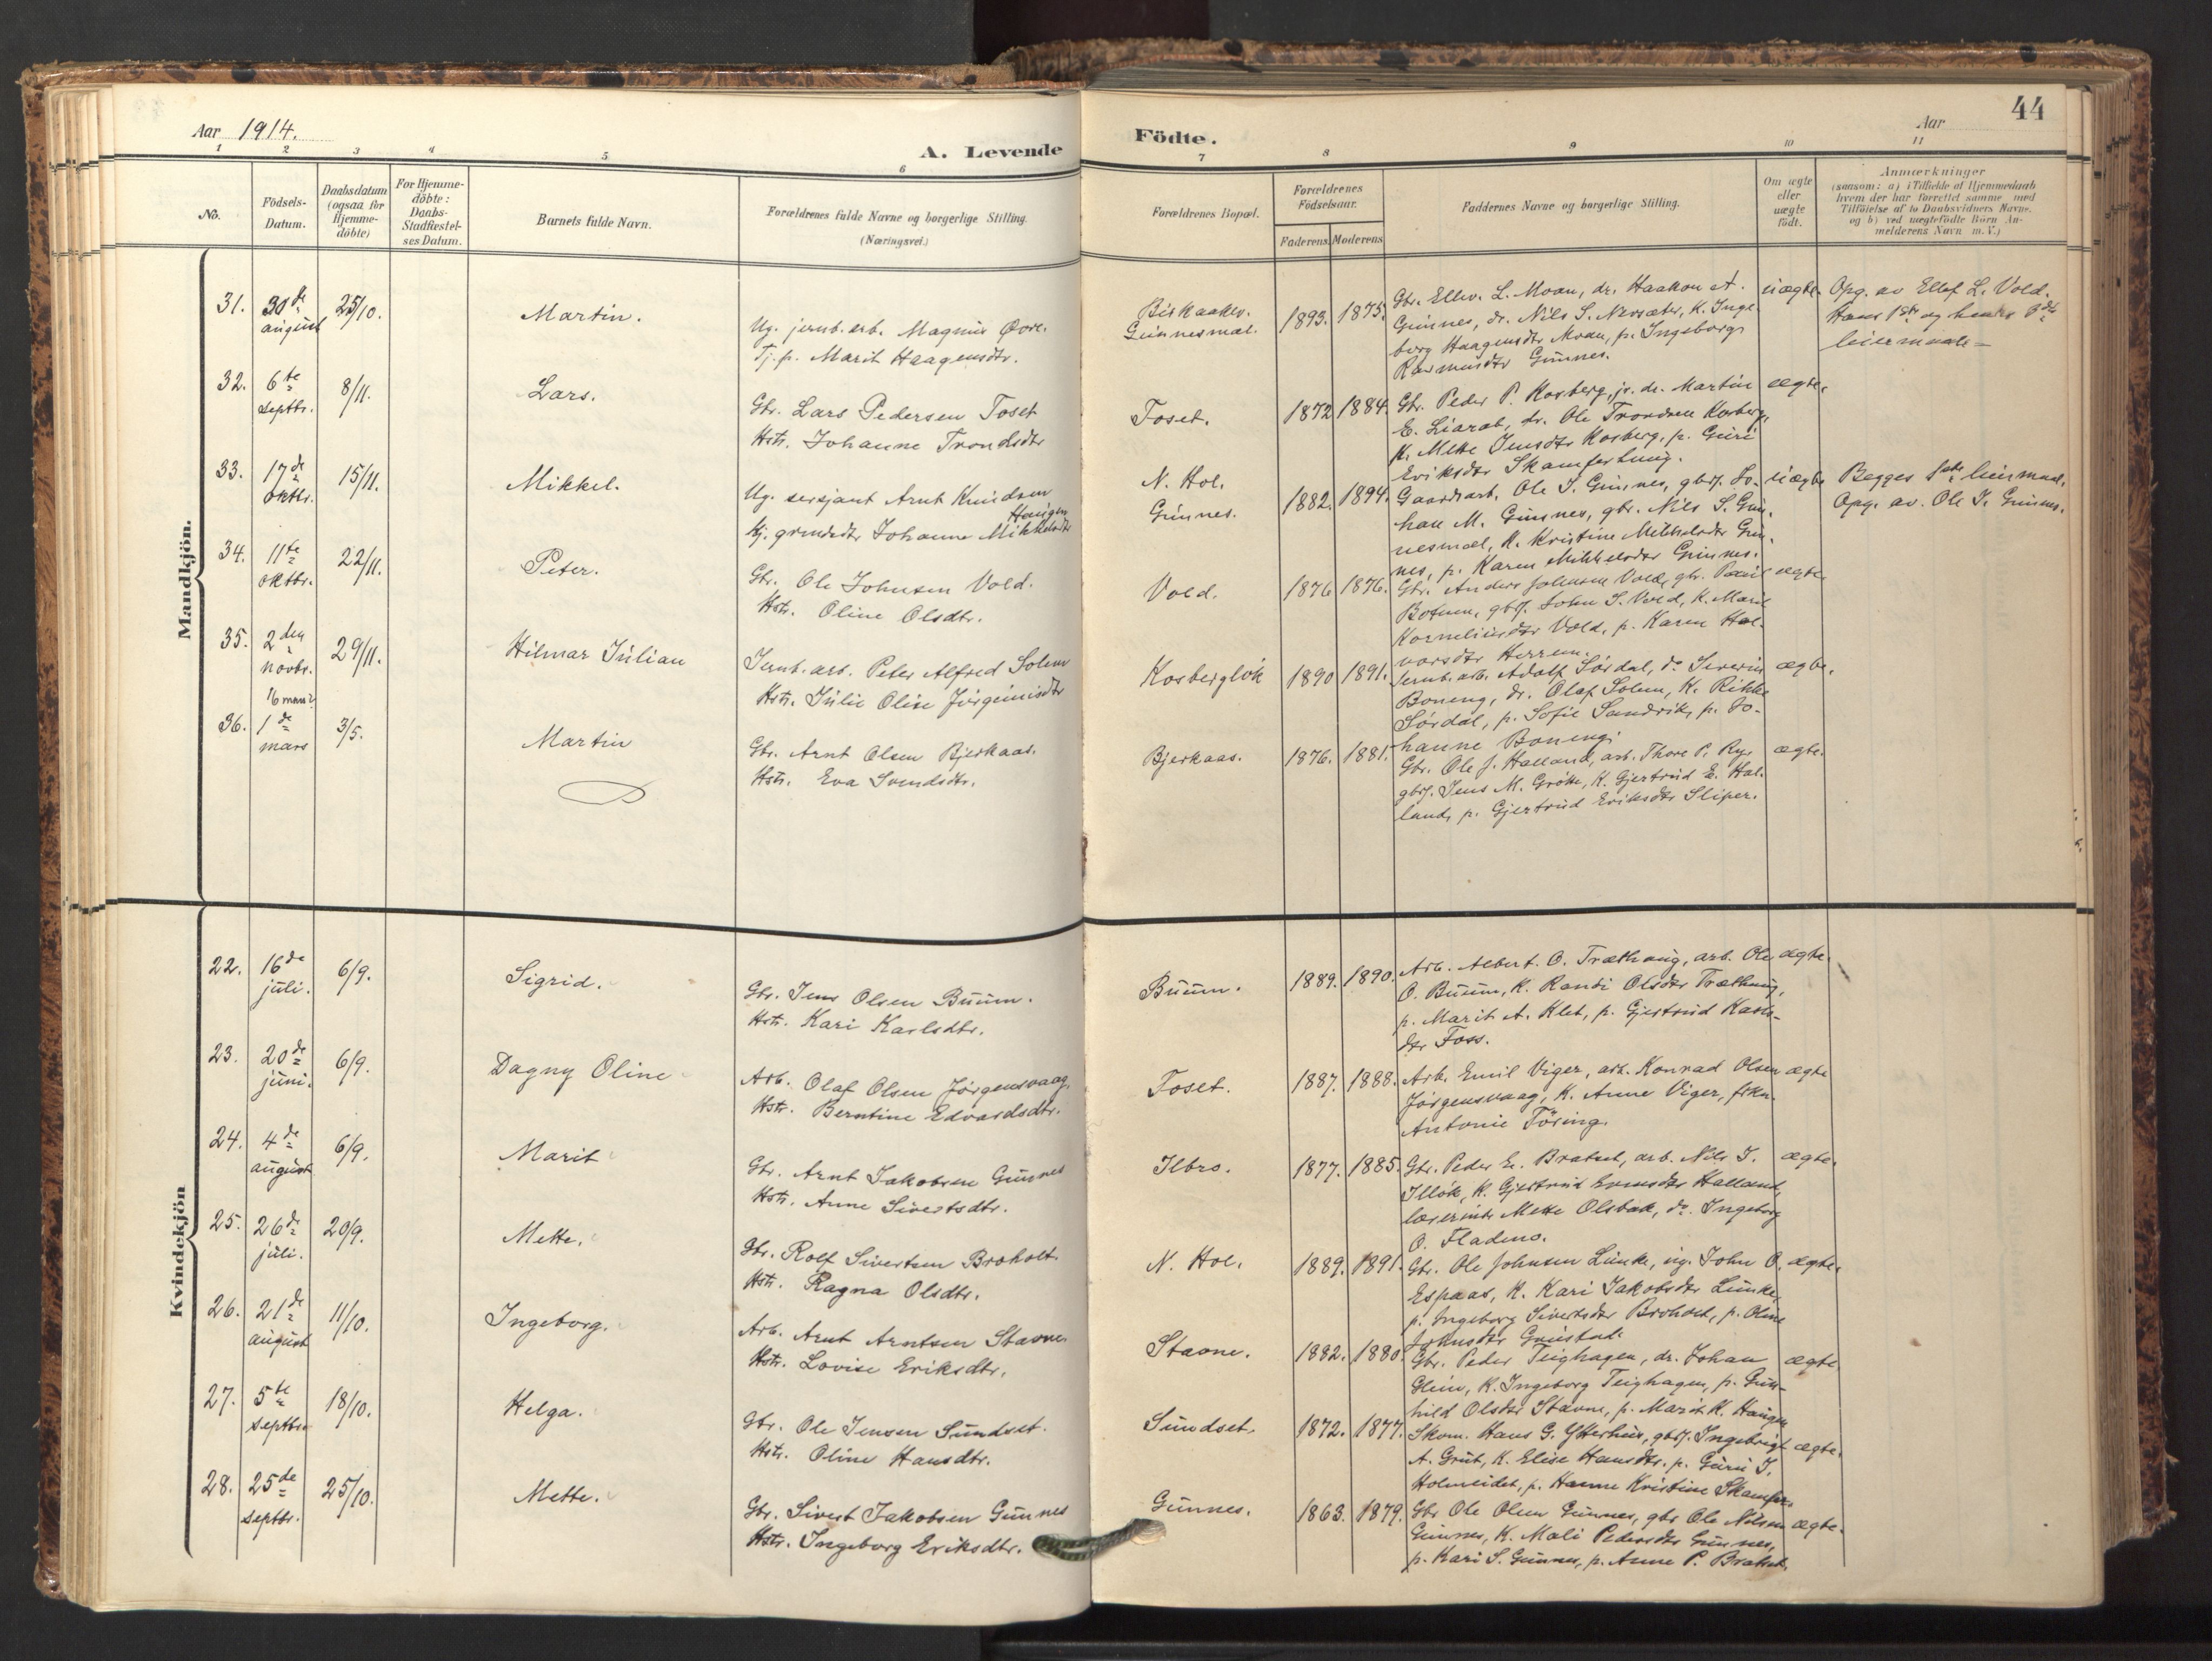 Aar 1914.
A. Levende Födte.
Aar
44
1 2 3 4 5 6 7 8 9 10 11
No.
Födsels-
Datum.
Daabsdatum
(ogsaa for
Hjemme-
döbte)
For Hjemme-
döbte:
Daabs-
Stadfæstel-
ses Datum.
Barnets fulde Navn.
Forældrenes fulde Navne og borgerlige Stilling.
(Næringsvei.)
Forældrenes Bopæl.
Forældrenes
Födselsaar.
Faderens. Moderens
Faddernes Navne og borgerlige Stilling.
Om ægte
eller
uægte
födt.
Anmærkninger
(saasom: a) i Tilfælde af Hjemmedaab
hvem der har forrettet samme med
Tilföielse af to Daabsvidners Navne.
og b) ved uægtefödte Börn An-
melderens Navn m. V.)
Mandkjön.
31. 30de august 25/10. Martin.
Ug. jernb.arb. Magnus Øvre.
Tj. p. Marit Haagensdtr.
Gunnesmæl. 1893. 1875.
Gbr. Ellev. L. Moan, dr. Haakon A.
Gunnes, dr. Nils S. K. Inge-
borg Haagensdtr Moan, p. Ingeborg
Rasmusdtr Gunnes.
uægte.
Opg. av Ellef L. Vold.
Hans 1ste og hendes
leiermaale
32. 6te septbr. 8/11. Lars.
Gbr. Lars Pedersen Toset
Hstr. Johanne Trondsdtr
Toset. 1872 1884.
Gbr. Peder P. Kosberg, jr. dr. Martin
E. Liarab, dr. Ole Trondsen Kosberg,
K. Mette Jensdtr Kosberg, p. Guri
Eriksdtr Skamferhaug.
ægte.
33. 17de oktbr. 15/11. Mikkel.
Ug. sersjant Arnt Knudsen
Haugen
Kj. grmdstr Johanne Mikkelsdtr
N. Hol.
Gunnes. 1882. 1894.
Gaardsarb. Ole J. Gunnes, gbrs. Jo-
han M. Gunnes, gbr. Nils S. Gun-
nesmæl, K. Kristine Mikkelsdtr Gun-
nes, p. Karen Mikkelsdtr Gunnes.
uægte
Begges 1ste leiermaal.
Opg. av. Ole J. Gunnes.
34. 11te oktbr. 22/11. Peter.
Gbr. Ole Johnsen Vold.
Hstr. Oline Olsdtr.
Vold. 1876 1876.
Gbr. Anders Johnsen Vold, gbr. Paul
Botnen, gbrs. John S. Vold, K. Marit
Korneliusdtr Vold, p. Karen Hal-
vorsdtr Herrem.
ægte.
35. 2den novbr. 29/11. Hilmar Julian
Jernb.arb. Peter Alfred Solem
Hstr. Julie Oline Jörginusdtr
Kosberglök 1890 1891.
Jernb.arb. Adolf Sördal, do Severin
Boneng, dr. Olaf Solem, K. Rikke
Sördal, p. Sofie Sandvik, p. Jo-
hanne Boneng.
ægte.
36. 1de mars 3/5. Martin
Gbr. Arnt Olsen Bjerkaas.
Hstr. Eva Svendsdtr.
Bjerkaas. 1876. 1881.
Gbr. Ole J. Halland, arb. Thore P. Rye
gbrs. Jens M. Gröte, K. Gjertrud E. Hal-
land, p. Gjertrud Eriksdtr Sliper.
ægte.
Kvindekjön
22. 16de juli. 6/9. Sigrid.
Gbr. Jens Olsen Buum.
Hstr. Kari Karlsdtr.
Buum. 1889. 1890.
Arb. Albert O. Træthaug, arb. Ole
O. Buum, K. Randi Olsdtr Træthaug,
p. Marit A. Klet, p. Gjertrud Karls-
dtr Foss.
ægte.
23. 20de juni. 6/9. Dagny Oline
Arb. Olaf Olsen Jörgensvaag,
Hstr. Berntine Edvardsdtr.
Toset. 1887. 1888.
Arb. Emil Viger, arb. Konrad Olsen
Jörgensvaag, K. Anne Viger, frkn.
Antonie Töring.
ægte
24. 4de august 6/9. Marit
Gbr. Arnt Jakobsen Gunnes
Hstr. Anne Sivertsdtr.
Ilbro. 1877. 1885.
Gbr. Peder E. Bratset, arb. Nils J.
Illök, K. Gjertrud Halland,
lærerinde Mette Olsbak, do. Ingeborg
O. Fladmo.
ægte.
25. 26de juli. 20/9. Mette.
Gbr. Rolf Sivertsen Broholt.
Hstr. Ragna Olsdtr.
N. Hol. 1889. 1891.
Gbr. Ole Johnsen Lunke, ug. John O.
Espaas, K. Kari Jakobsdtr Lunke,
p. Ingeborg Sivertsdtr Broholt, p. Oline
Johnsdtr
ægte.
26. 21de august 11/10. Ingeborg.
Arb. Arnt Arntsen Stavne.
Hstr. Lovise Eriksdtr.
Stavne. 1882. 1880.
Gbr. Peder Teighagen, dr. Johan
K. Ingeborg Teighagen, p. Gun-
hild Olsdtr Stavne, p. Marit K. Haugen
ægte.
27. 5te septbr. 18/10. Helga.
Gbr. Ole Jensen Sundset.
Hstr. Oline Hansdtr.
Sundset. 1872. 1877.
Skom. Hans G. Ytterhus, gbrs. Ingebrigt
A. Grut, K. Elise Hansdtr. p. Guru J.
Holmeidet, p. Hanne Kristine
ægte.
28. 25de septbr. 25/10. Mette.
Gbr. Sivert Jakobsen Gunnes
Hstr. Ingeborg Eriksdtr.
Gunnes. 1863. 1879.
Gbr Ole Olsen Gunnes, gbr Ole Nilsen
Gunnes, K. Mali Pedersdtr Gunnes,
p. Kari S. Gunnes, p. Anne P. Bratset.
ægte.